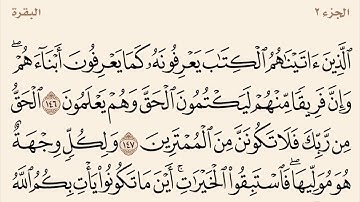 الجزء ٢ البقرة
ٱلَّذِينَ ءَاتَيۡنَٰهُمُ ٱلۡكِتَٰبَ يَعۡرِفُونَهُۥ كَمَا يَعۡرِفُونَ أَبۡنَآءَهُمۡۖ
وَإِنَّ فَرِيقٗا مِّنۡهُمۡ لَيَكۡتُمُونَ ٱلۡحَقَّ وَهُمۡ يَعۡلَمُونَ ١٤٦ ٱلۡحَقُّ
مِن رَّبِّكَ فَلَا تَكُونَنَّ مِنَ ٱلۡمُمۡتَرِينَ ١٤٧ وَلِكُلّٖ وِجۡهَةٌ
هُوَ مُوَلِّيهَاۖ فَٱسۡتَبِقُواْ ٱلۡخَيۡرَٰتِۚ أَيۡنَ مَا تَكُونُواْ يَأۡتِ بِكُمُ ٱللَّهُ